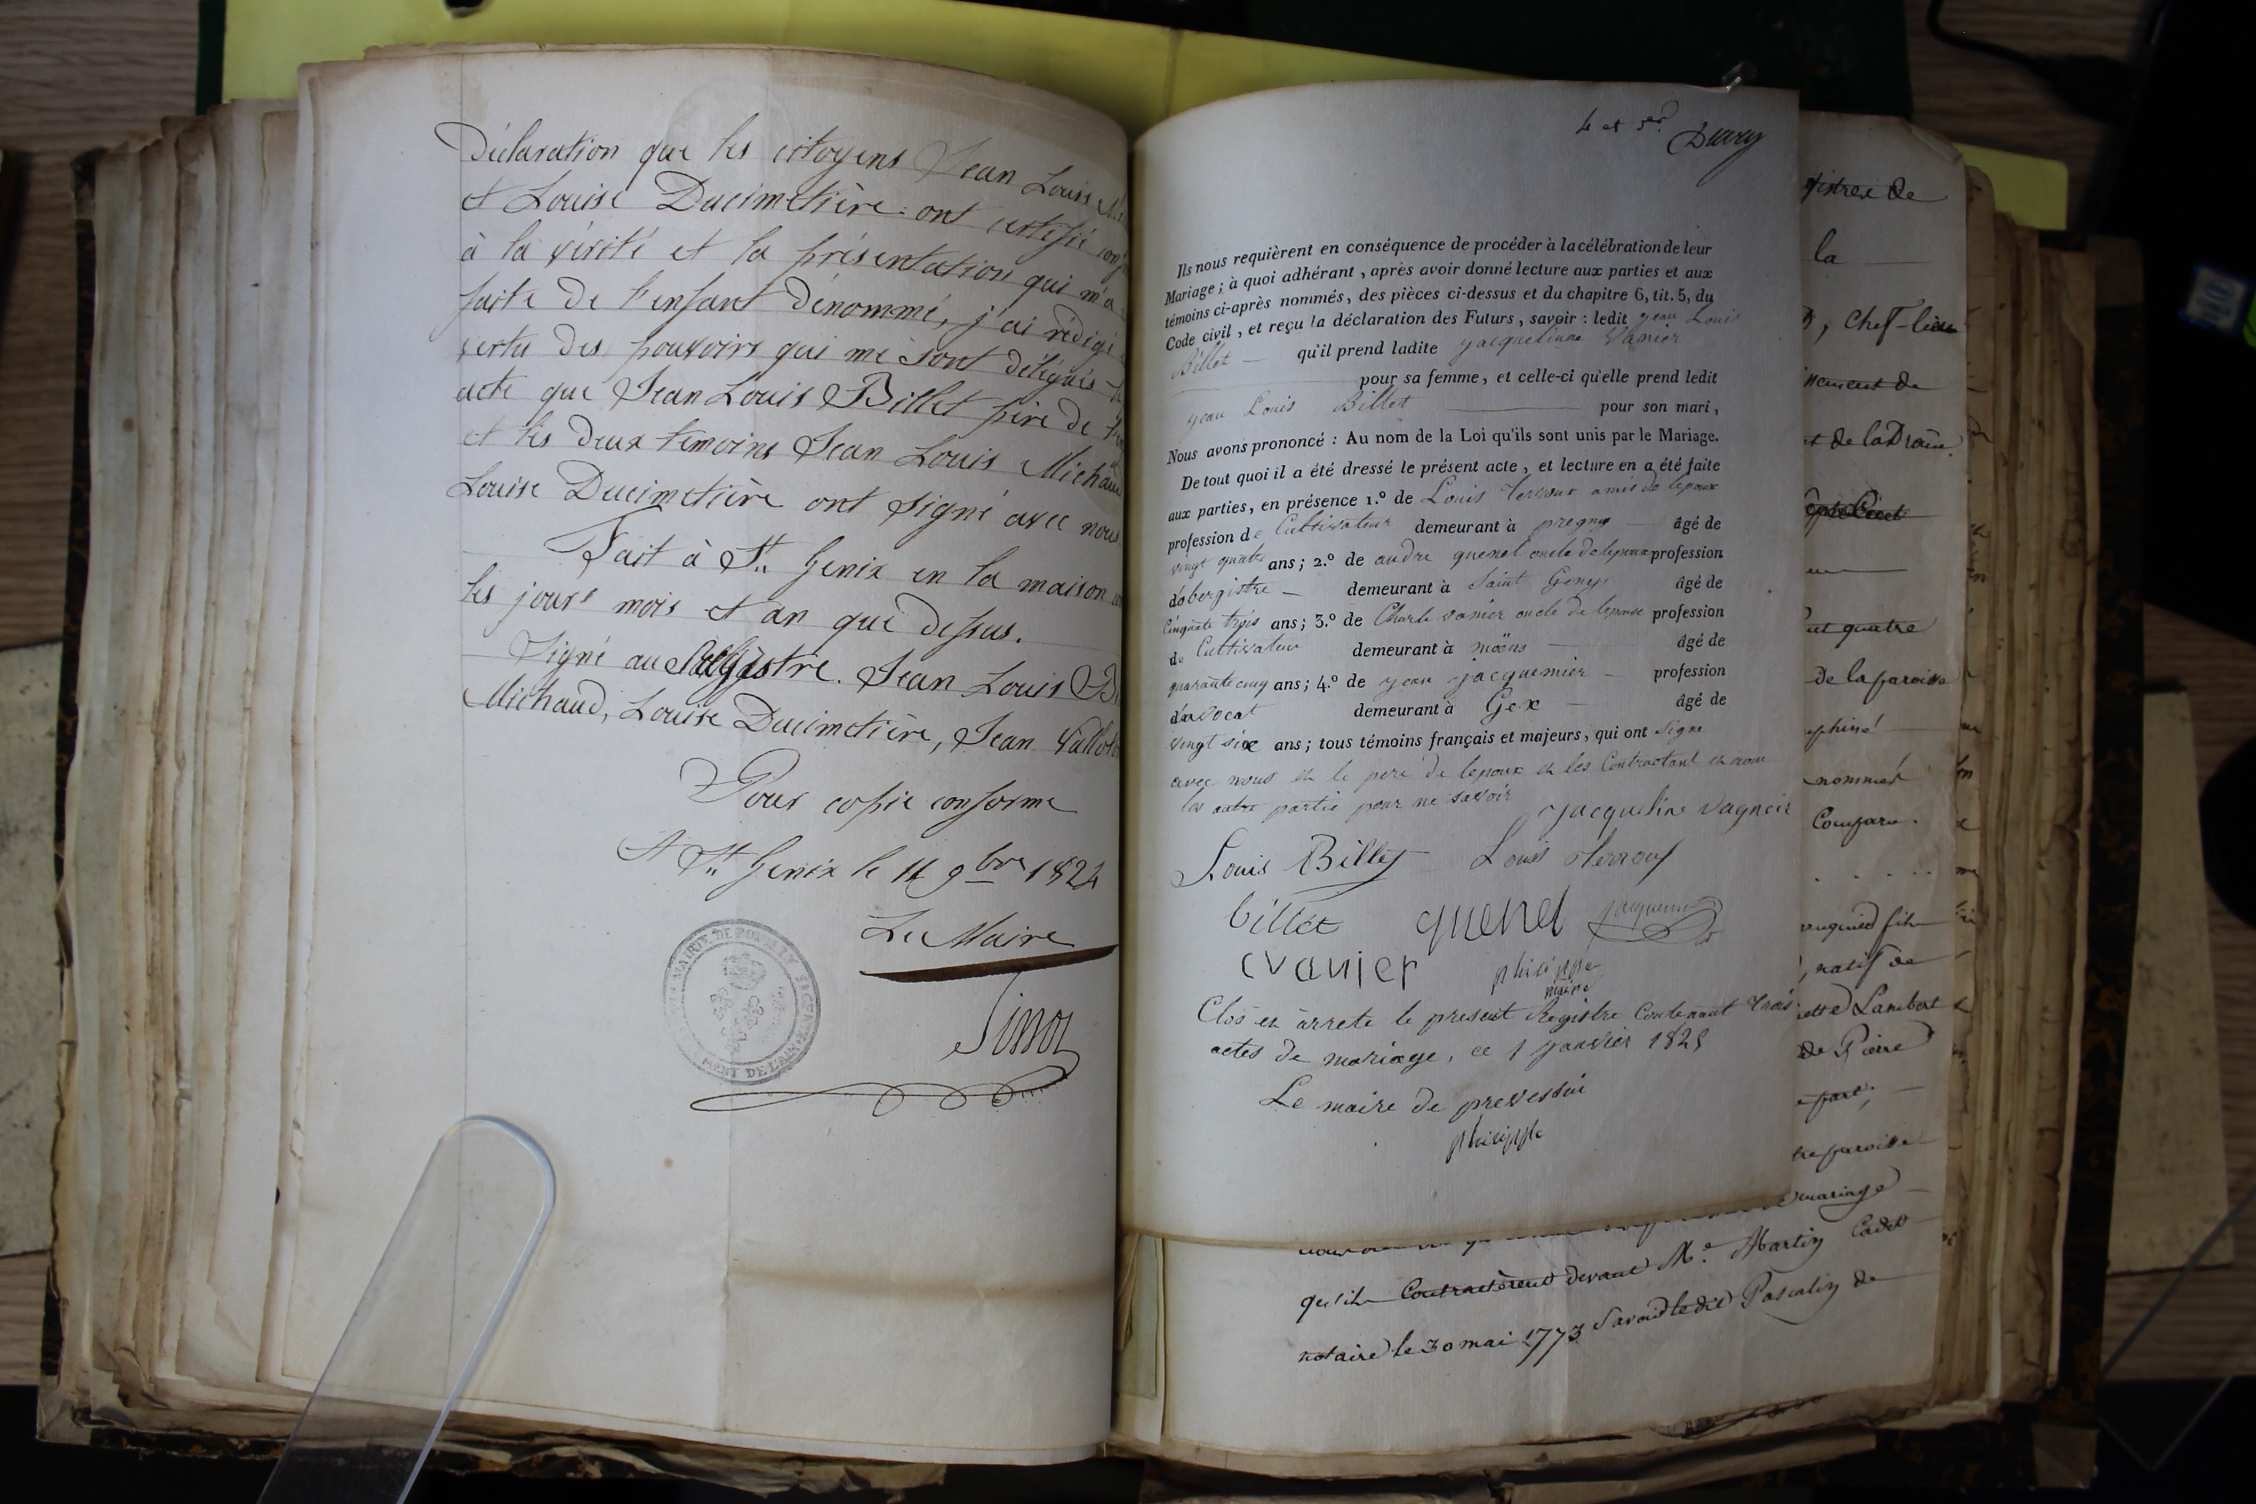 Déclaration que les citoyens Jean Louis
et Louise Ducimetière ont certifié
à la vérité et la présentation qui m'a
faite de l'enfant dénommé, j'ai rédigé
vertu des pouvoirs qui me sont délégués
acte que Jean Louis Billet père de
et les deux témoins Jean Louis Michaud
Louise Ducimetière ont signé avec nous
Fait à St Genix en la maison
les jours mois et an que dessus.
Signé au Registre. Jean Louis B
Michaud, Louise Ducimetière, Jean
Pour copie conforme
A St Genix le 11 9bre 1824
Le Maire
Simon
MAIRIE DE POUILLY
MENT DE L'AIN
4 et 5er. Ducry
Ils nous requièrent en conséquence de procéder à la célébration de leur
Mariage ; à quoi adhérant, après avoir donné lecture aux parties et aux
témoins ci-après nommés, des pièces ci-dessus et du chapitre 6, tit. 5, du
Code civil, et reçu la déclaration des Futurs, savoir : ledit jean Louis
Billet qu'il prend ladite jacqueline Vanier
pour sa femme, et celle-ci qu'elle prend ledit
jean Louis Billet pour son mari,
Nous avons prononcé : Au nom de la Loi qu'ils sont unis par le Mariage.
De tout quoi il a été dressé le présent acte, et lecture en a été faite
aux parties, en présence 1.º de Louis Terroux amis de lepoux
profession de Cultivateur demeurant à pregny âgé de
vingt quatre ans ; 2.º de andre quenel oncle delepoux profession
dobergistre demeurant à Saint Geny âgé de
Cinquate trois ans ; 3.º de Charle vanier oncle de lepouse profession
de Cultivateur demeurant à moëns âgé de
quarante cinq ans ; 4.º de jean jacquemier profession
d'avocat demeurant à Gex âgé de
vingt six ans ; tous témoins français et majeurs, qui ont signe
avec nous et le pere de lepoux et les Contractant et non
les autre partie pour ne savoir
jacqueline vagneir
Louis Billet Louis terroux
billet quenel jacquemier
cvanier philippe
maire
Clos et arrete le present Registre Contenant trois
actes de mariage, ce 1 janvier 1825
Le maire de prevessin
philippe
gistres de
la
, chef-lieu
t de la Drôme
ut quatre
de la paroisse
nommés
Compara
natif de
Lambert
de Pierre
part,
paroisse
mariage
qu'ils Contractèrent devant Me. Martin Cadet
notaire le 30 mai 1773 Savoir ledit Pascalin de